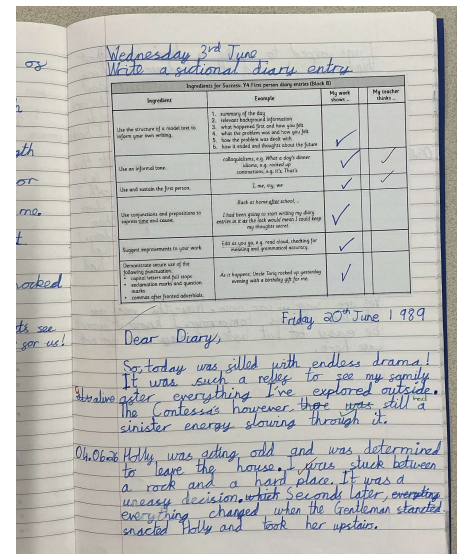 Wednesday 3rd June
Write a fictional diary entry
Ingredients for Success: Y4 First person diary entries (Block B)
Ingredient Example My work shows ... My teacher thinks ...
Use the structure of a model text to inform your own writing.
1. summary of the day
2. relevant background information
3. what happened first and how you felt
4. what the problem was and how you felt
5. how the problem was dealt with
6. how it ended and thoughts about the future
Use an informal tone.
colloquialisms, e.g. What a dog's dinner
idioms, e.g. rocked up
contractions, e.g. It's, That's
Use and sustain the first person.
I, me, my, we
Use conjunctions and prepositions to express time and cause.
Back at home after school...
I had been going to start writing my diary
entries in it as the lock would mean I could keep
my thoughts secret.
Suggest improvements to your work.
Edit as you go, e.g. read aloud, checking for
meaning and grammatical accuracy.
Demonstrate secure use of the
following punctuation:
• capital letters and full stops
• exclamation marks and question
marks
• commas after fronted adverbials.
As it happens, Uncle Tariq rocked up yesterday
evening with a birthday gift for me.
Friday 20th June 1989
Dear Diary,
So, today was filled with endless drama!
It was such a relief to see my family
after everything I've explored outside.
The Contessa's however, there was still a
sinister energy flowing through it.
04.06.26
Holly was acting odd and was determined
to leave the house. I was stuck between
a rock and a hard place. It was a
uneasy decision. which Seconds later, everyting
everything changed when the Gentleman stareted
snacted Holly and took her upstairs.
os
me.
ts see
for us!